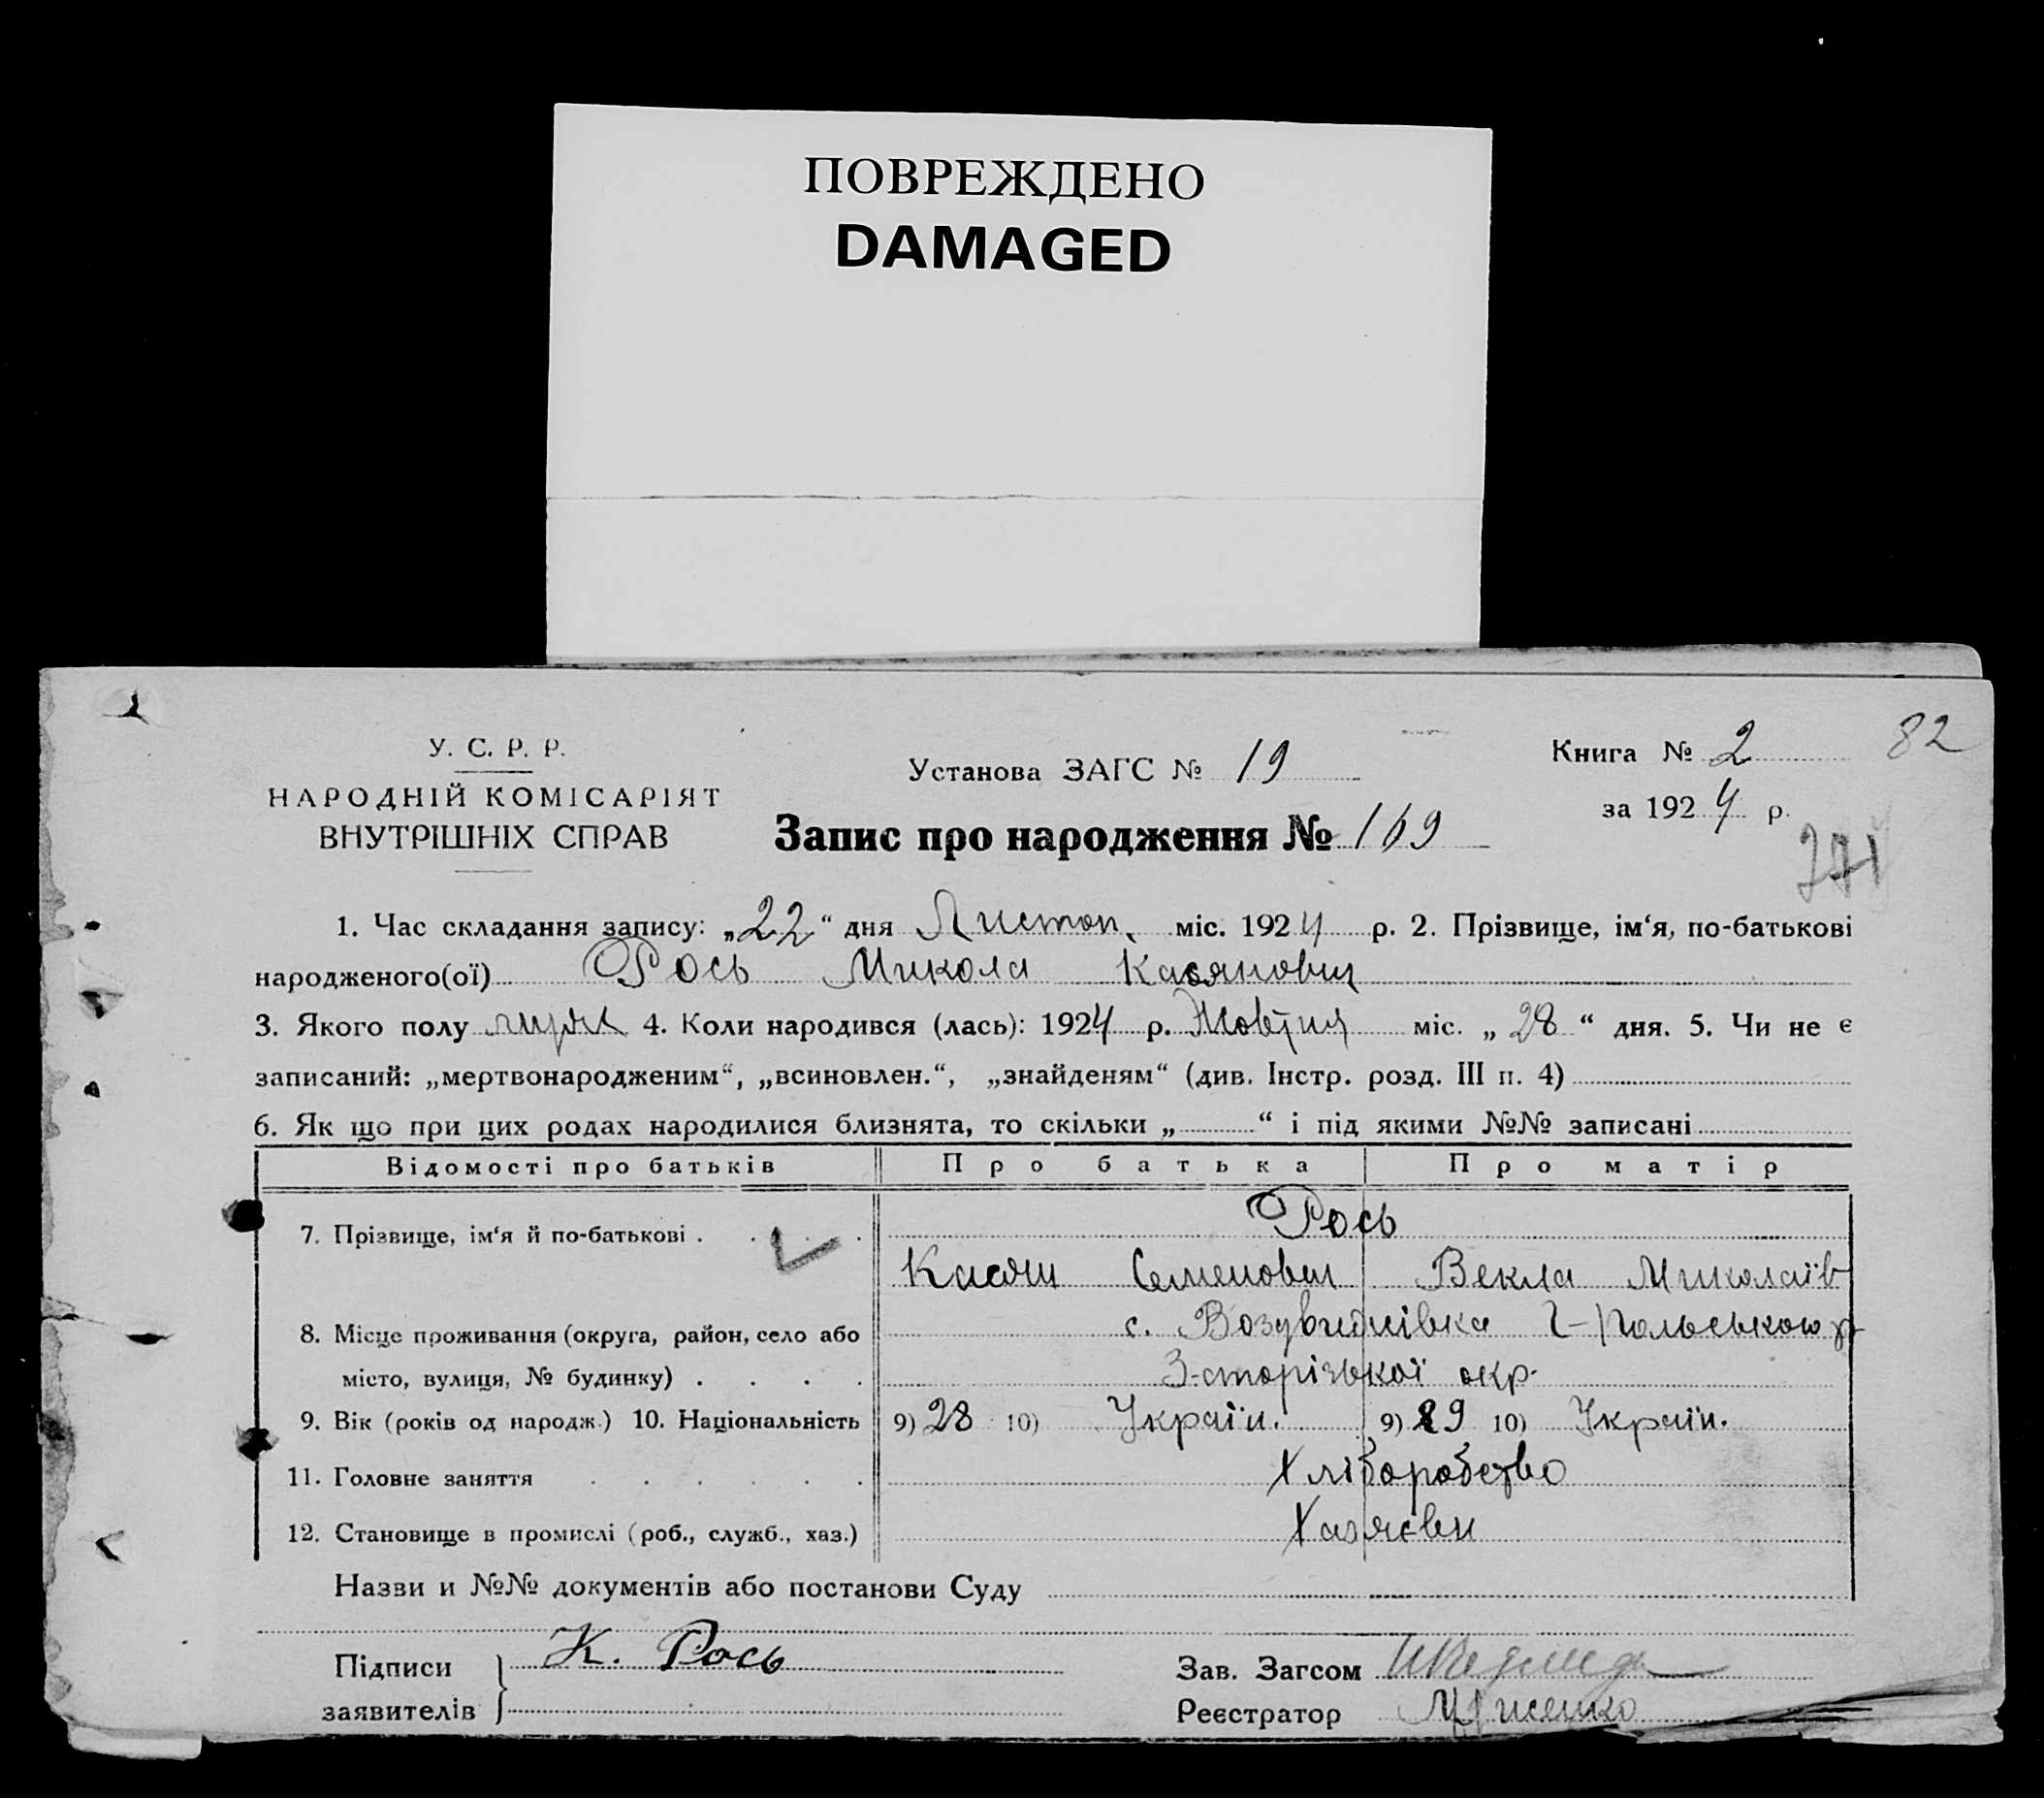 ПОВРЕЖДЕНО
DAMAGED
У. С. Р. Р.
НАРОДНІЙ КОМІСАРІЯТ
ВНУТРІШНІХ СПРАВ
Установа ЗАГС № 19
Запис про народження № 169
Книга № 2
82
за 1924 р.
1. Час складання запису: „22“ дня Листоп. міс. 1924 р. 2. Прізвище, ім‘я, по-батькові
народженого(ої) Рось Микола Касянович
3. Якого полу 4. Коли народився (лась): 1924 р. Жовтня міс. „28“ дня. 5. Чи не є
записаний: „мертвонародженим“, „всиновлен.“, „знайденям“ (див. Інстр. розд. III п. 4)
6. Як що при цих родах народилися близнята, то скільки „ “ і під якими №№ записані
Відомості про батьків Про батька Про матір
7. Прізвище, ім‘я й по-батькові . . . . Рось
Касян Семенович Векла Миколаїв
8. Місце проживання (округа, район, село або с. Воздвиднівка Г-Польського р
місто, вулиця, № будинку) . . . . З-сторізької окр.
9. Вік (років од народж.) 10. Національність 9) 28 10) Україн. 9) 29 10) Україн.
11. Головне заняття . . . . . . Хліборобство
12. Становище в промислі (роб., служб., хаз.) Хазяєви
Назви и №№ документів або постанови Суду
Підписи К. Рось Зав. Загсом
заявителів Реєстратор